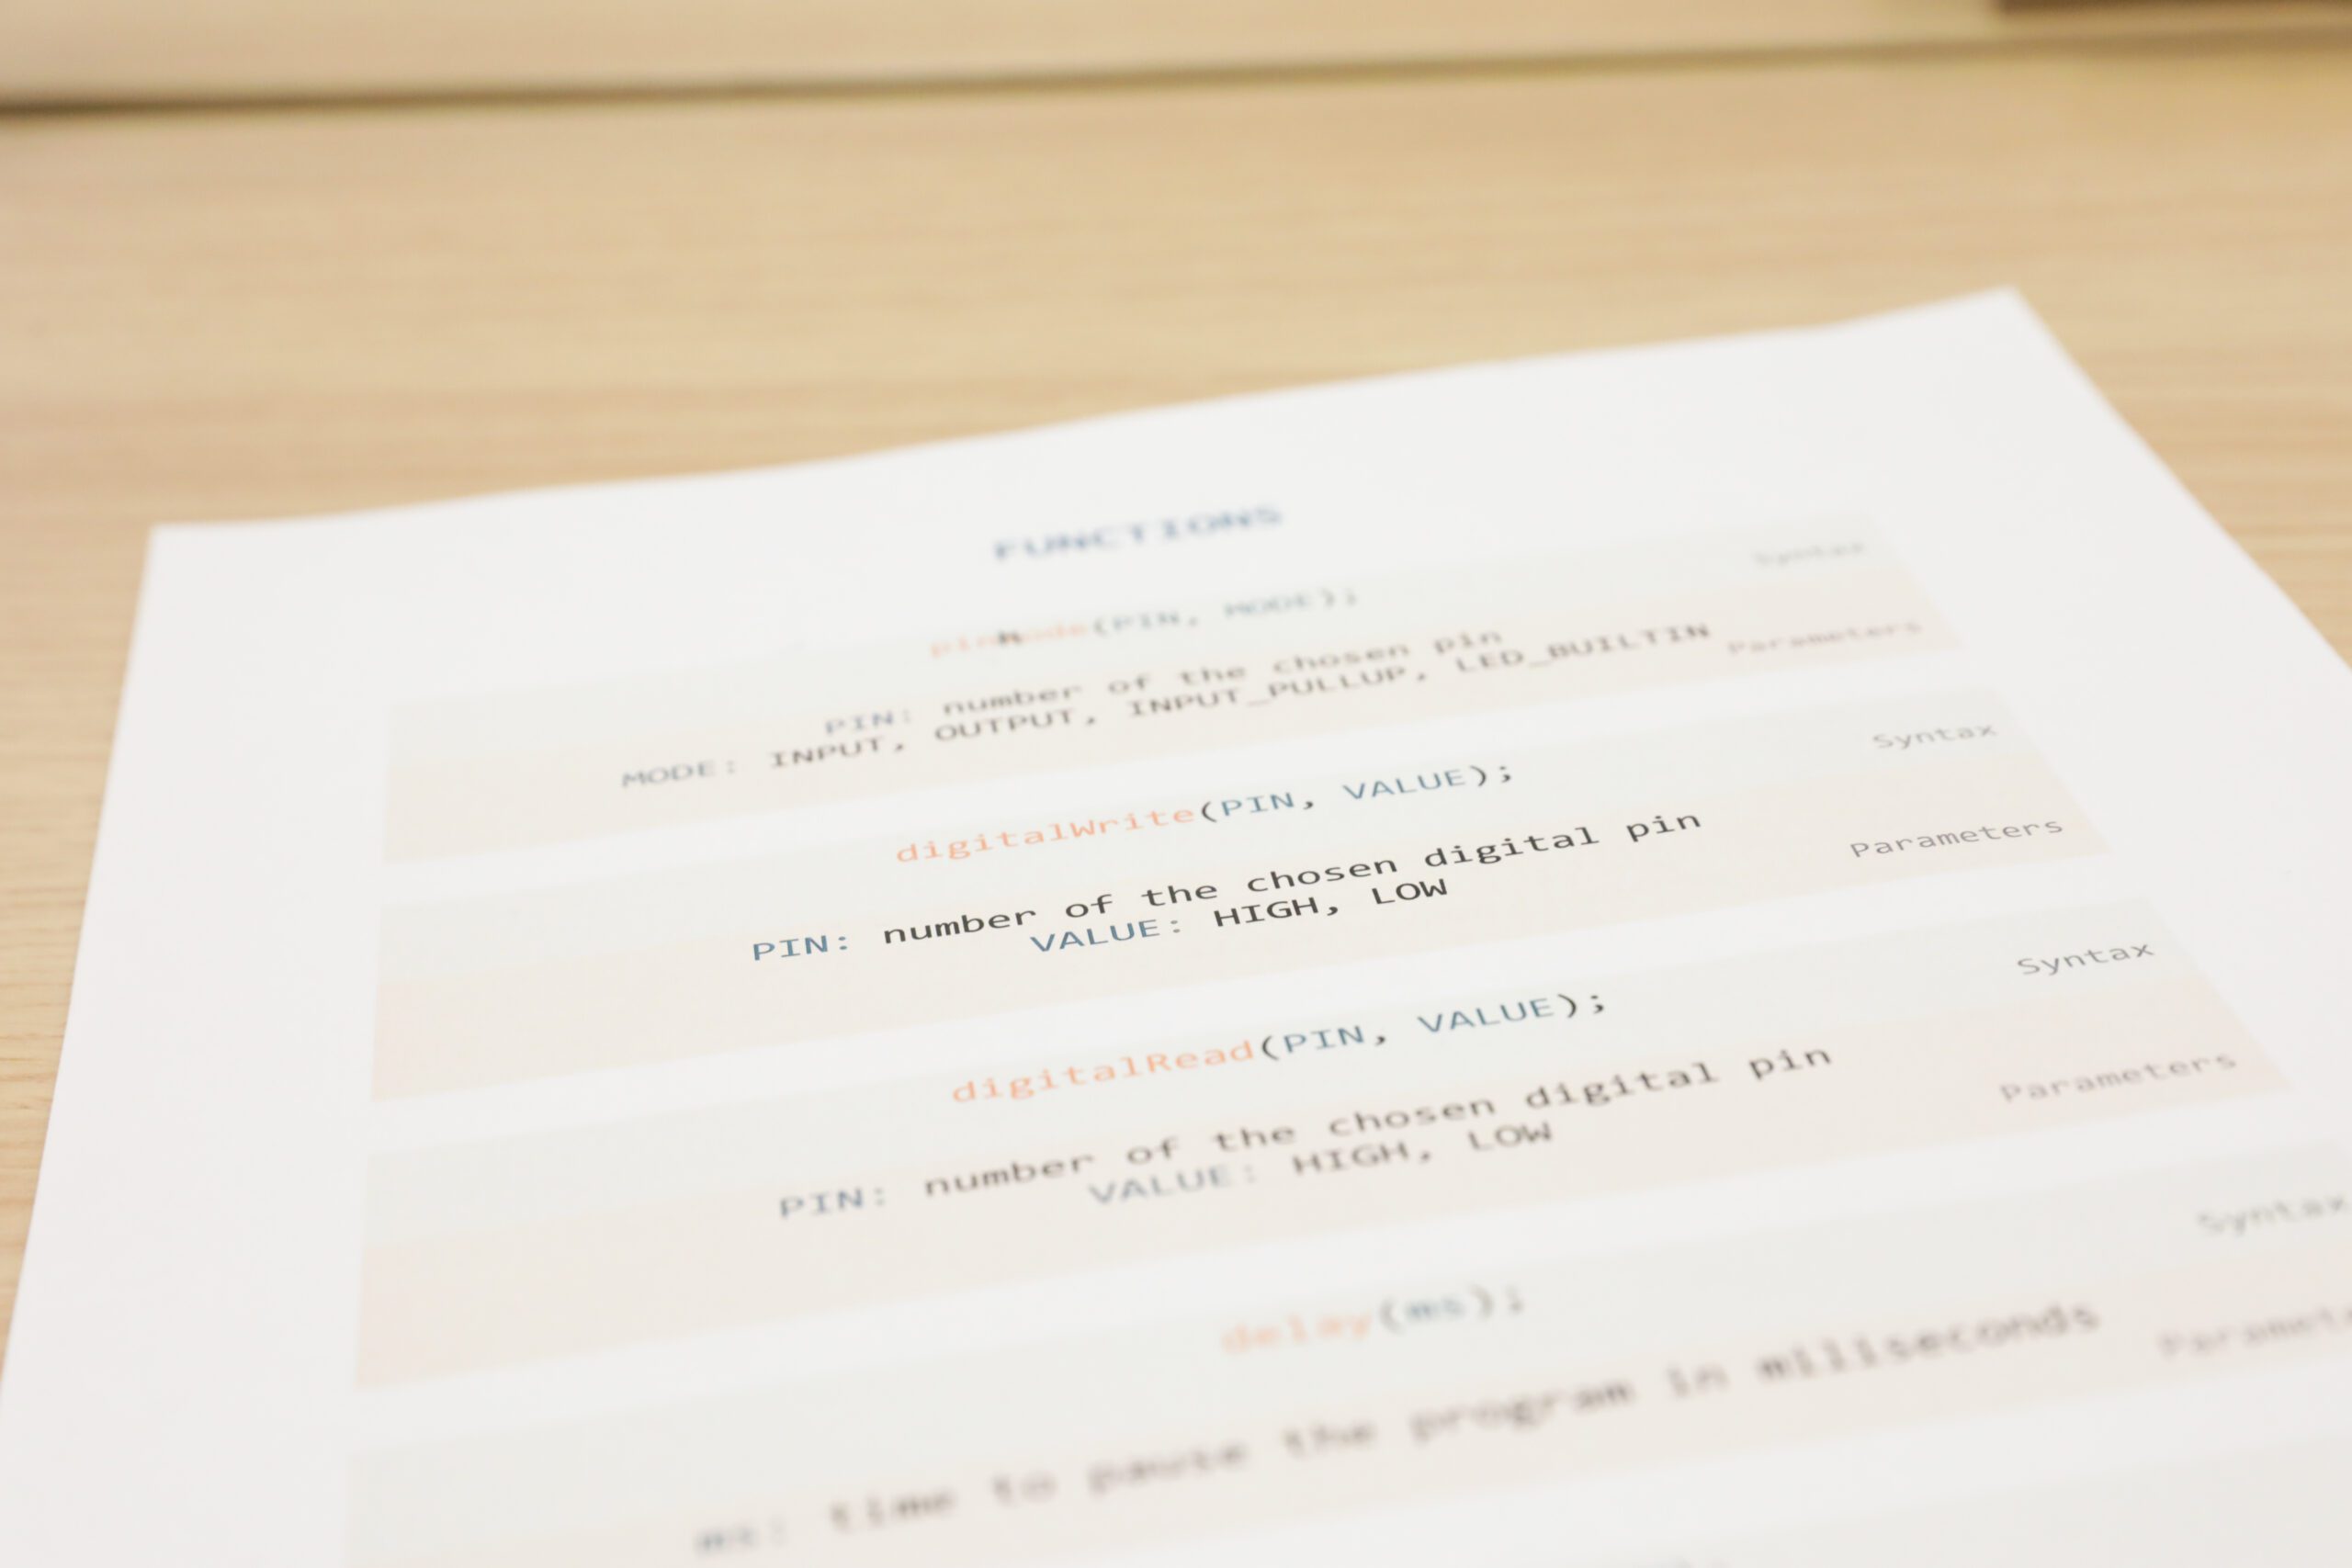 FUNCTIONS
pinMode(PIN, MODE);
Syntax
PIN: number of the chosen pin
MODE: INPUT, OUTPUT, INPUT_PULLUP, LED_BUILTIN
Parameters
digitalWrite(PIN, VALUE);
Syntax
PIN: number of the chosen digital pin
VALUE: HIGH, LOW
Parameters
digitalRead(PIN, VALUE);
Syntax
PIN: number of the chosen digital pin
VALUE: HIGH, LOW
Parameters
delay(ms);
Syntax
ms: time to pause the program in milliseconds